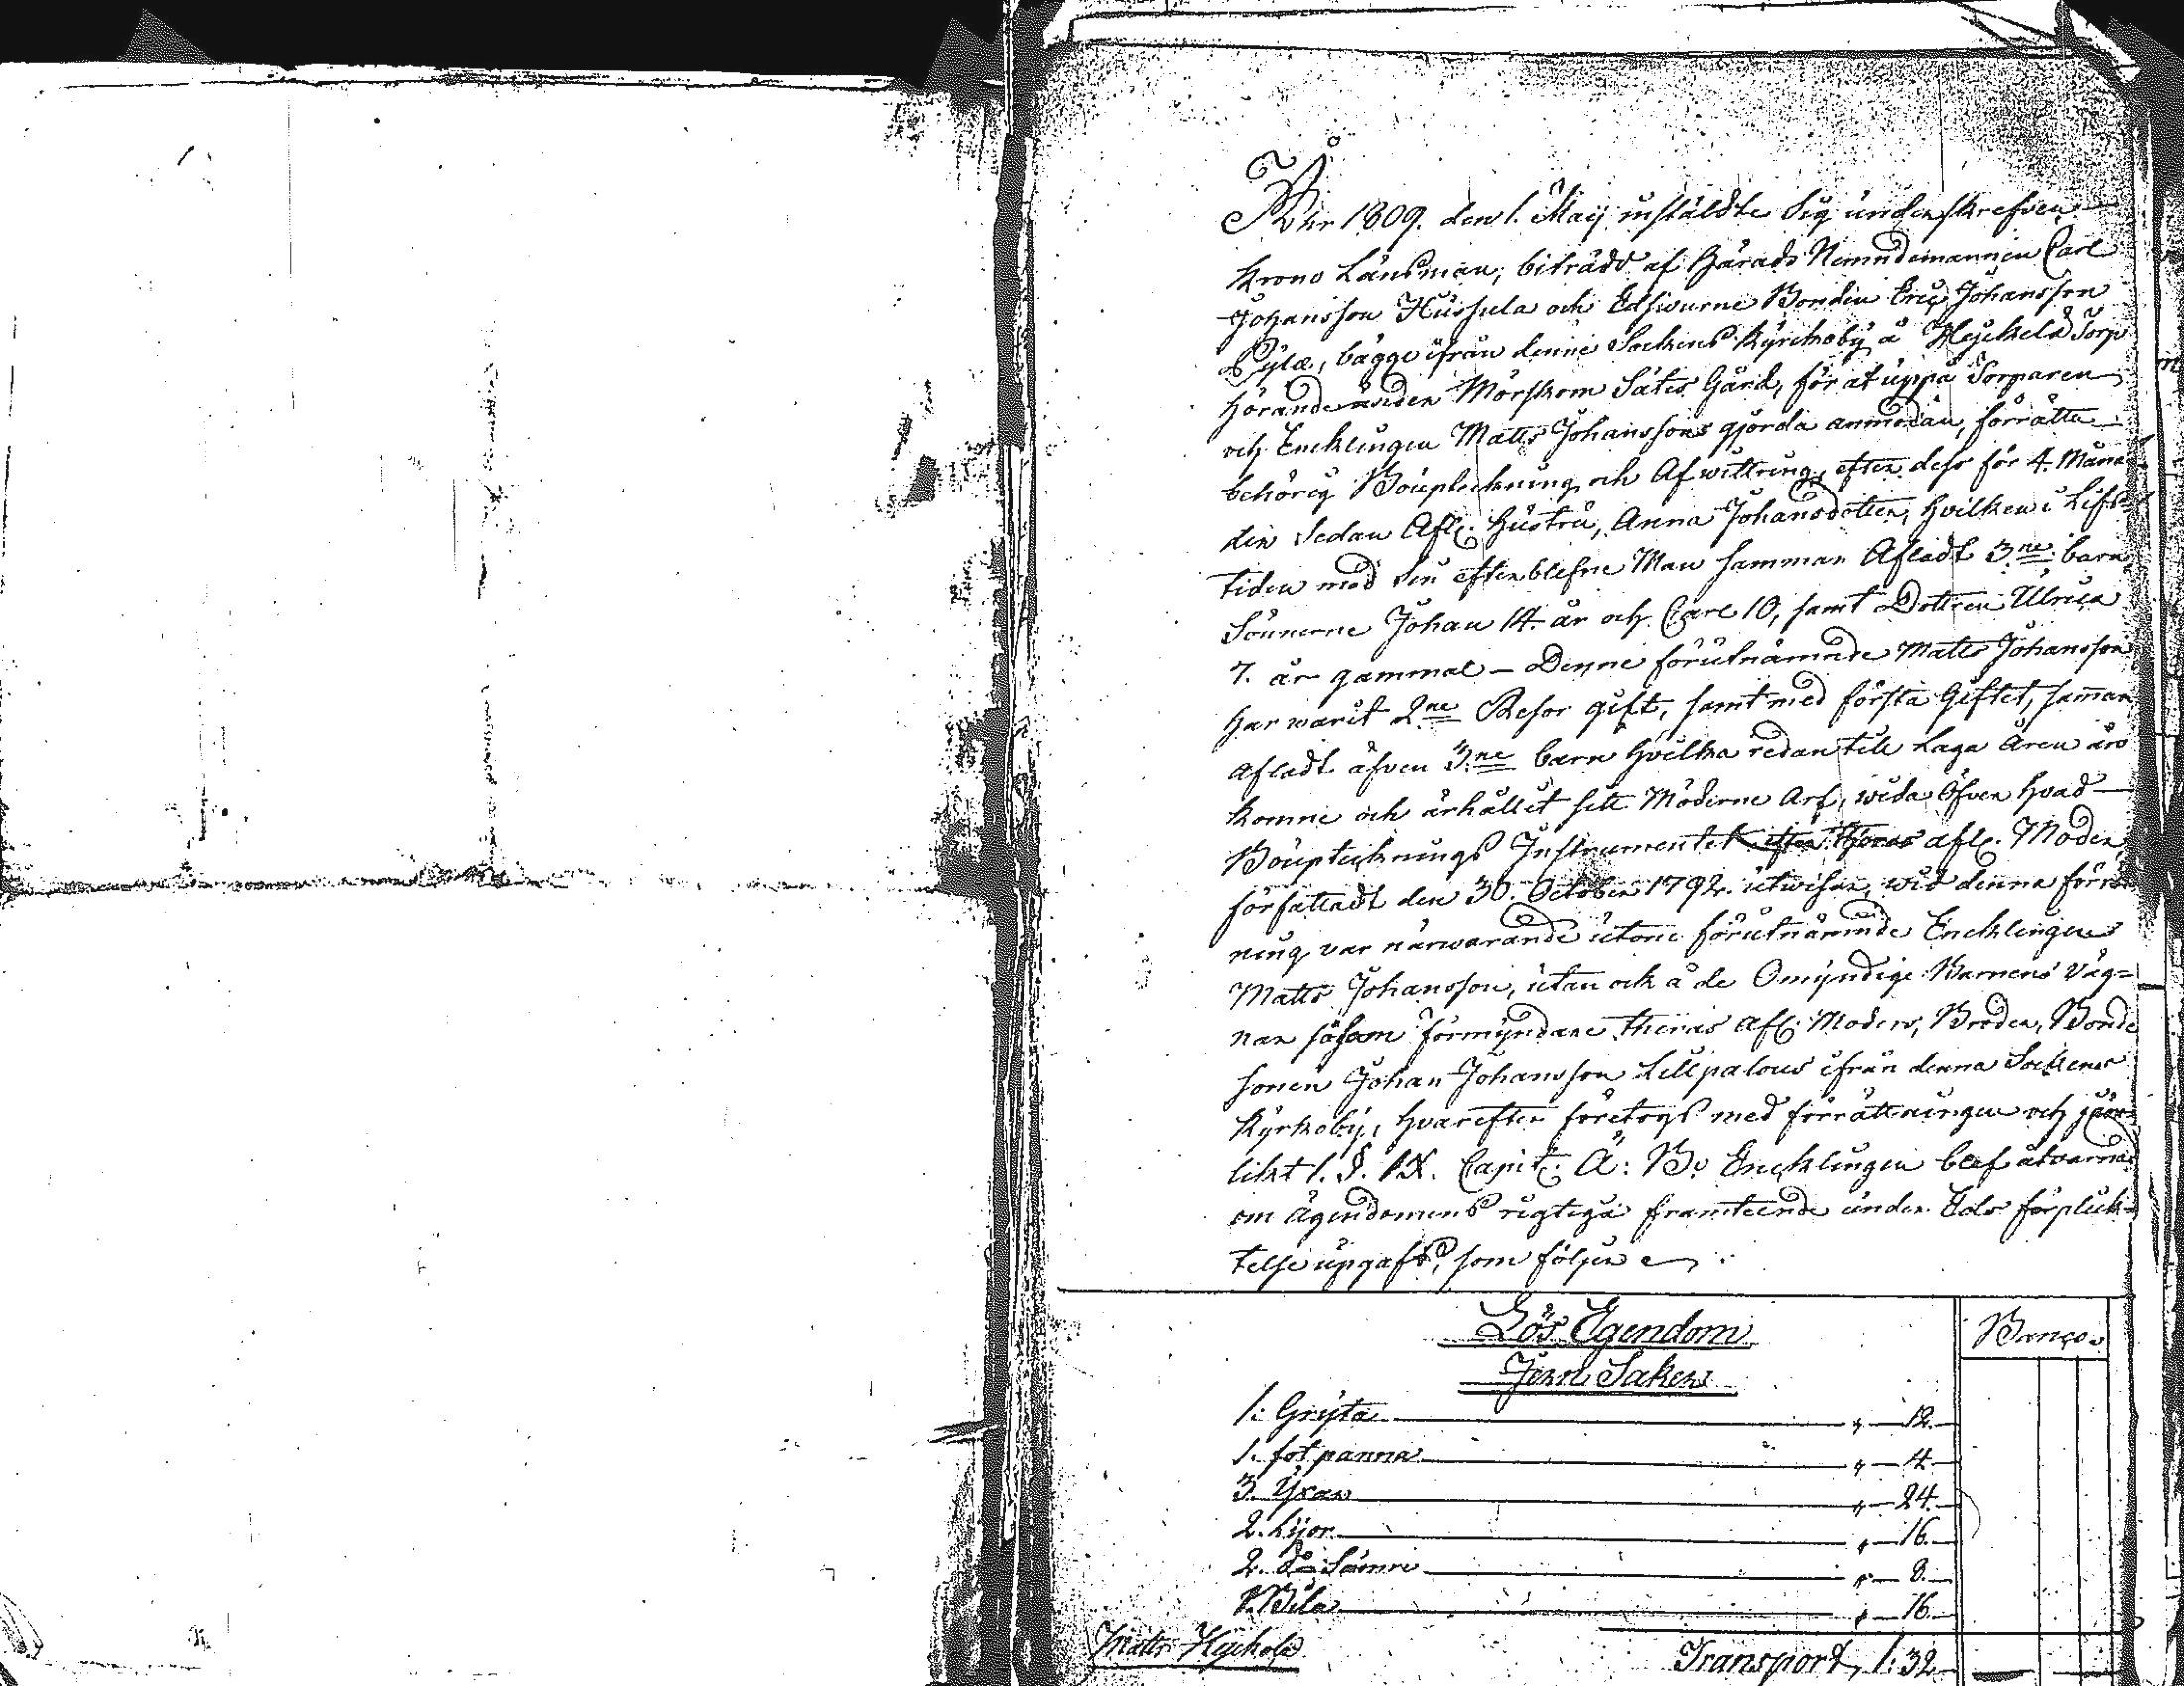 Åhr 1809. den 1. Maij instäldte Sig underskrefven
Krono Länsman, biträdd af Härads Nemndemannen Carl
Johansson Hussula och Edswurne Bonden Eric Johansson
Sylæ, bägge ifrån denne Sockens Kyrckoby å Heickelä Torp
hörande under Mörskom Sätes Gård, för at uppå Torparen
och Encklingen Matts Johanssons gjorda anmodan, förrätta
behörig Bouptekning och Afwittring, efter dess för 4. Måna-
der sedan Afl. Hustru, Anna Johansdotter, hvilken i Lifs-
tiden med sin efterblefne Man samman Afladt 3:ne barn
Sönnerne Johan 14. år och Carl 10, samt Dottren Ulrica
7. år gammal – Denne förutnämnde Matts Johansson
har warit 2:ne Resor gift, samt med första Giftet, samman
afladt äfven 3:ne barn hvilka redan till Laga Åren äro
komne och ärhållit sitt Möderne Arf, wida öfver hvad
Bouptecknings Instrumentet efter theras afl. Moder
författadt den 30. October 1792. utwisar, wid denna förrätt-
ning var närwarande utom förutnämnde Encklingen
Matts Johansson, utan ock å de Omyndige Barnens väg-
nar såsom förmyndare theras Afl. Moders, Broder, Bonde
sonen Johan Johansson Lillpalous ifrån denna Sockens
Kyrkoby, hvarefter företogs med förrättningen och jäm-
likt 1. §. IX. Capit. Ä: B: Encklingen blef åtvarnad
om Ägendomens rigtiga framteende under Eds förplick-
telse upgafs, som följer
Lös Egendom
Banco
Jern Saker
1. Gryta " 12.
1. fot panna " 4
3. Yxar " 24.
2. Lijor " 16.
2. do Sämre " 8.
1. Bila " 16.
Matts Hyckelä
Transport, 1: 32